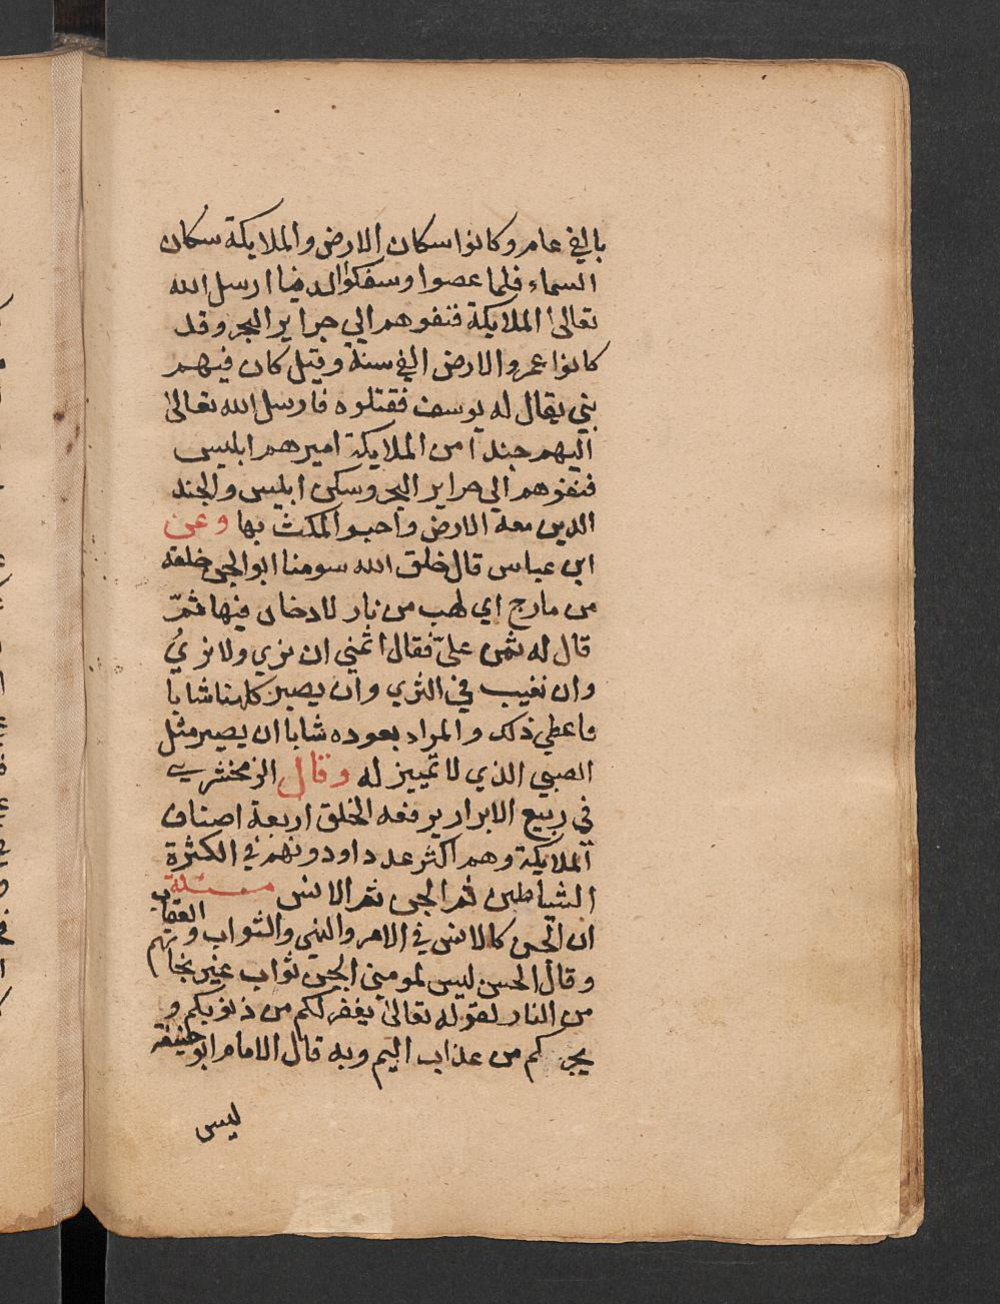 بالفي عام وكانوا سكان الارض والملايكة سكان
السماء فلما عصوا وسفكوا الدما ارسل الله
تعالى الملايكة فنفوهم الي جزاير البحر وقد
كانوا عمروا الارض الفي سنة وقيل كان فيهم
نبي يقال له يوسف فقتلوه فارسل الله تعالى
اليهم جندا من الملايكة اميرهم ابليس
فنفوهم الي جزاير البحر وسكن ابليس والجند
الذين معه الارض واحبوا المكث بها وعن
ابن عباس قال خلق الله سومنا ابو الجن خلقه
من مارج اي لهب من نار لا دخان فيها ثمّ
قال له تمن عليّ فقال اتمني ان نري ولا نري
وان نغيب في الثري وان يصير كهلنا شابا
فاعطي ذلك والمراد بعوده شابا ان يصير مثل
الصبي الذي لا تمييز له وقال الزمخشري
في ربيع الابرار يرفعه الخلق اربعة اصناف
الملايكة وهم اكثر عددا ودونهم في الكثرة
الشياطين ثم الجن ثم الانس مسئلة
ان الجن كالانس في الامر والنهي والثواب والعقاب
وقال الحسن ليس لمومني الجن ثواب غير نجاتهم
من النار لقوله تعالى يغفر لكم من ذنوبكم و
يجركم من عذاب اليم وبه قال الامام ابو حنيفة
ليس